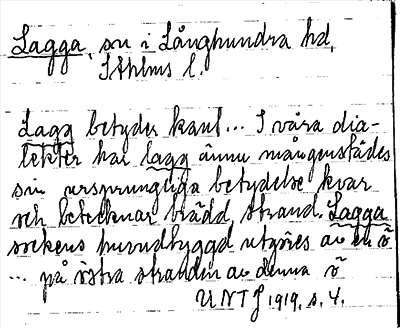 Lagga, sn i Långhundra hd,
Sthlms l.
Lagg betyder kant... I våra dia-
lekter har lagg ännu mångenstädes
sin ursprungliga betydelse kvar
och betecknar brädd, strand. Lagga
sockens huvudbyggd utgöres av en ö
... på östra stranden av denna ö
UNTJ 1919, s. 4.